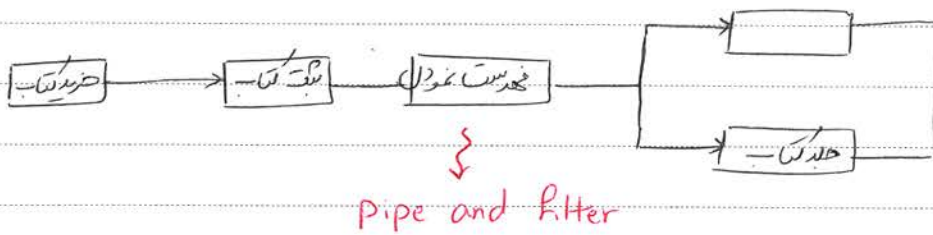 خرید کتاب
ثبت کتاب
فهرست نمودن
جلد کتاب
pipe and filter